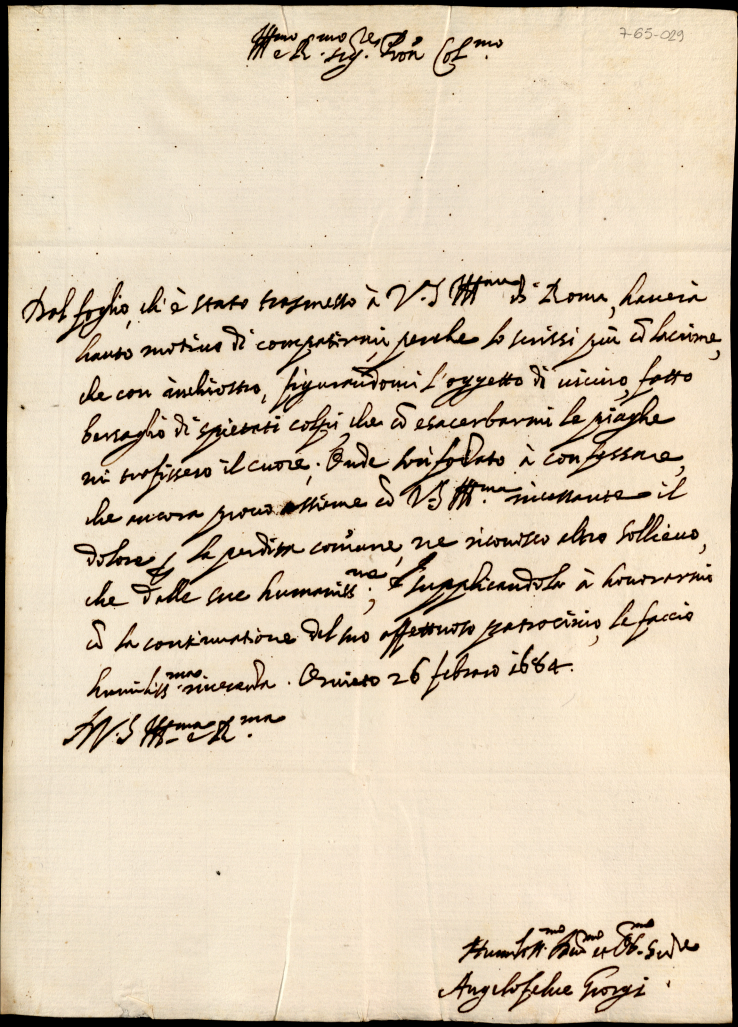 7-65-029
Ill.mo e R.mo Sig.re Pron Col.mo
Dal foglio, ch'è stato trasmesso à V.S Ill.ma di Roma, haverà
hauto motivo di compatirmi, perche lo scrissi più cō lacrime,
che con inchiostro, figurandomi l'oggetto di vicino, fatto
bersaglio di spietati colpi, che cō esacerbarmi le piaghe
mi trafissero il cuore. Onde son forzato à confessare,
che ancora provo assieme cō V.S Ill.ma incessante il
dolore p la perdita comune, ne riconosco altro sollievo,
che dalle sue humaniss.me; e supplicandola à honorarmi
cō la continuatione del suo affettuoso patrocinio, le faccio
humiliss.ma riverenza. Orvieto 26 febraro 1664.
Di V.S Ill.ma e R.ma
Humiliss.mo Dev.mo et Ob.mo Se.re
Angelofelice Giorgi